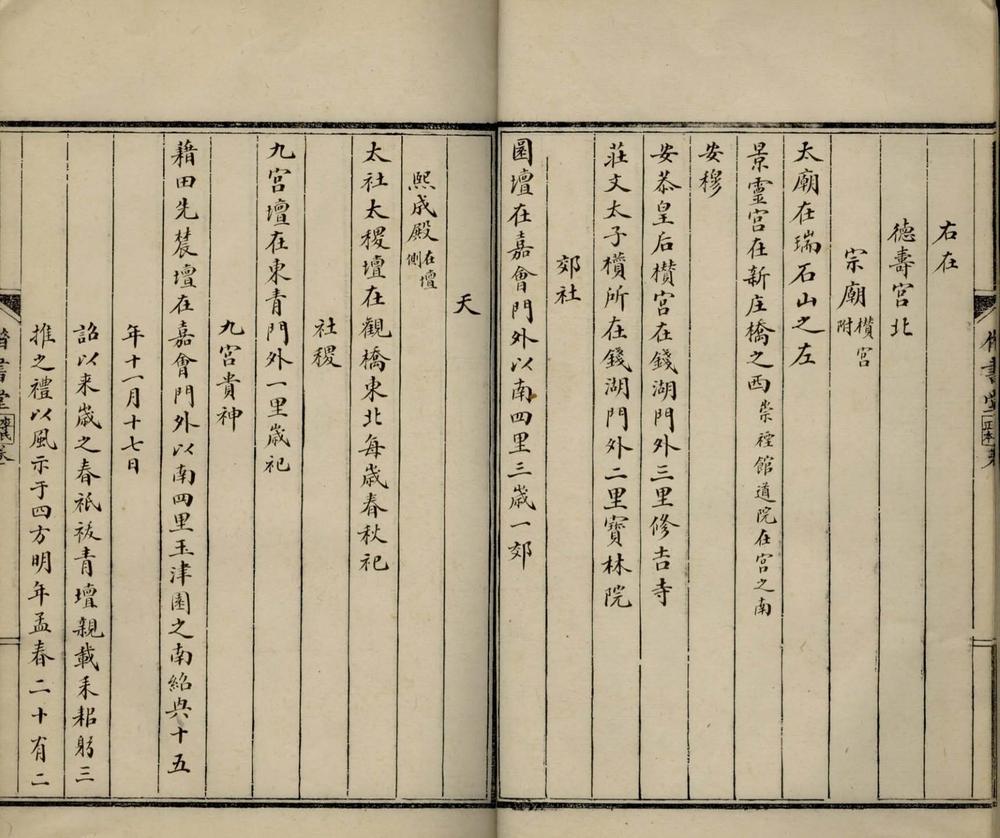 右在
德壽宮北
宗廟欑宮附
太廟在瑞石山之左
景靈宮在新庄橋之西崇禋館道院在宮之南
安穆
安恭皇后欑宮在錢湖門外三里修吉寺
莊文太子欑所在錢湖門外二里寳林院
郊社
圓壇在嘉會門外以南四里三嵗一郊
天
熙成殿在壇側
太社太稷壇在觀橋東北每嵗春秋祀
社稷
九宮壇在東青門外一里嵗祀
九宮貴神
藉田先農壇在嘉會門外以南四里玉津園之南紹興十五
年十一月十七日
詔以来嵗之春祇祓青壇親載耒耜躬三
推之禮以風示于四方明年孟春二十有二